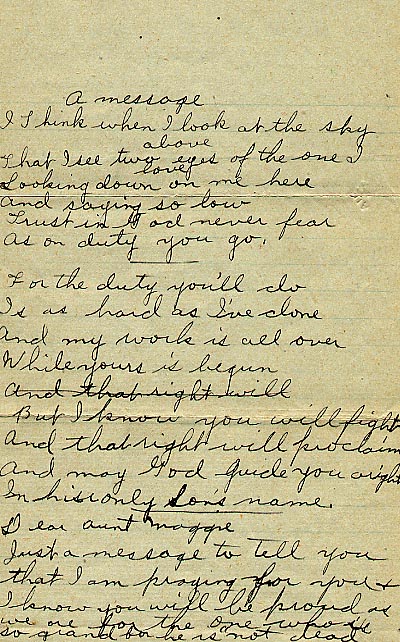 A message
I Think when I look at the sky
above
That I see two eyes of the one I
love
Looking down on me here
And saying so low
Trust in God never fear
As on duty you go.
For the duty you'll do
Is as hard as I've done
And my work is all over
While yours is begun
And that right will
But I know you will fight
And that right will proclaim
And may God guide you aright
In his only Son's name.
Dear aunt Maggie
Just a message to tell you
that I am praying for you &
I know you will be proud as
we are for the one who is
so grand for he is not dead